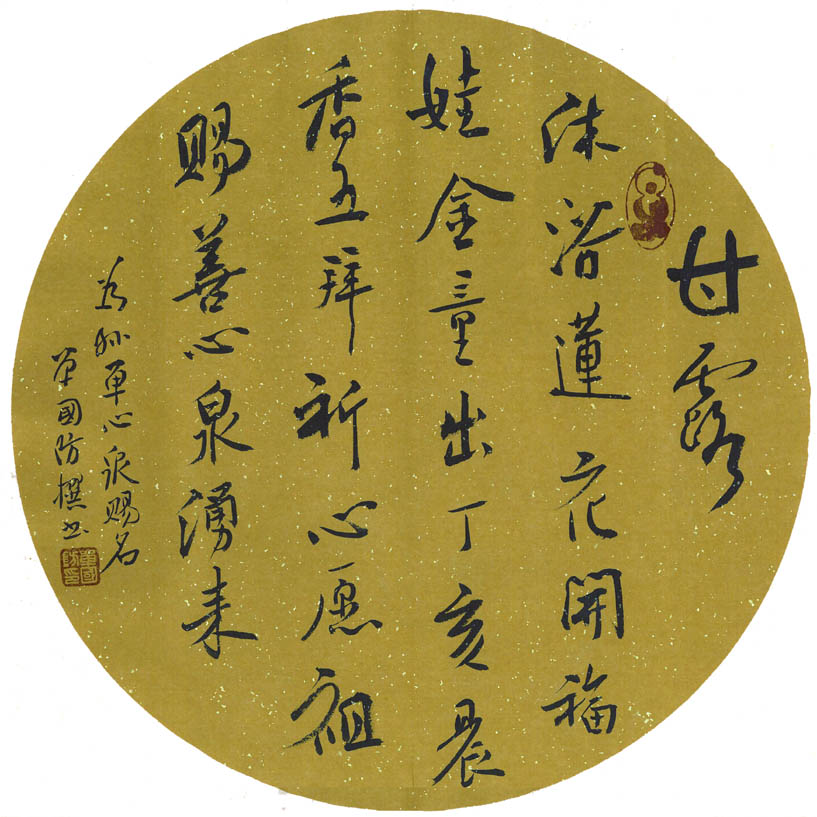 甘露
沐浴蓮花開福
娃金童出丁亥晨
香五拜祈心愿祖
賜善心泉湧来
为孙单心泉赐名
单國防撰书